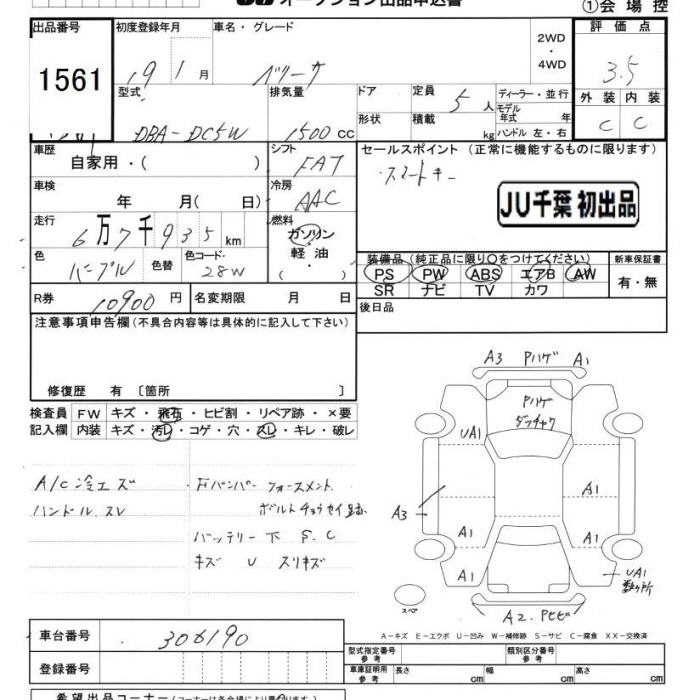 オークション出品申込書
①会場控
出品番号 1561
初度登録年月 19 1月
車名・グレード ベリーサ
2WD・4WD
評価点 3.5
外装 C 内装 C
型式 DBA-DC5W
排気量 1500 CC
ドア 定員 5人
形状 積載 kg
ディーラー・並行
モデル年式 年
ハンドル 左・右
車歴 自家用・( )
シフト FAT
セールスポイント (正常に機能するものに限ります)
スマートキー
JU千葉 初出品
車検 年 月( 日)
冷房 AAC
走行 6万7千935km
燃料 ガソリン 軽油 ( ・ )
色 パープル 色替 色コード 28W
装備品(純正品に限り○をつけてください)
PS PW ABS エアB AW
SR ナビ TV カワ
新車保証書 有・無
R券 10900円 名変期限 月 日
後日品
注意事項申告欄(不具合内容等は具体的に記入して下さい)
修復歴 有 〔箇所 〕
検査員 FW キズ・飛石・ヒビ割・リペア跡・×要
記入欄 内装 キズ・汚レ・コゲ・穴・スレ・キレ・破レ
A/C冷エズ
ハンドルスレ
Fバンパー フォースメント
ボルトチョウセイ跡
バッテリー下 S.C
キズ U スリキズ
A3 Pハゲ A1
Pハゲ
ダッチャク
UA1
A3
A1
A1
A1
A1
UA1
数ヶ所
スペ
A2.Pヒビ
A-キズ E-エクボ U-凹み W-補修跡 S-サビ C-腐食 XX-交換済
車台番号 306190
型式指定番号 参考 類別区分番号 参考
登録番号
車庫証明用 参考 長さ cm 幅 cm 高さ cm
希望出品コーナー